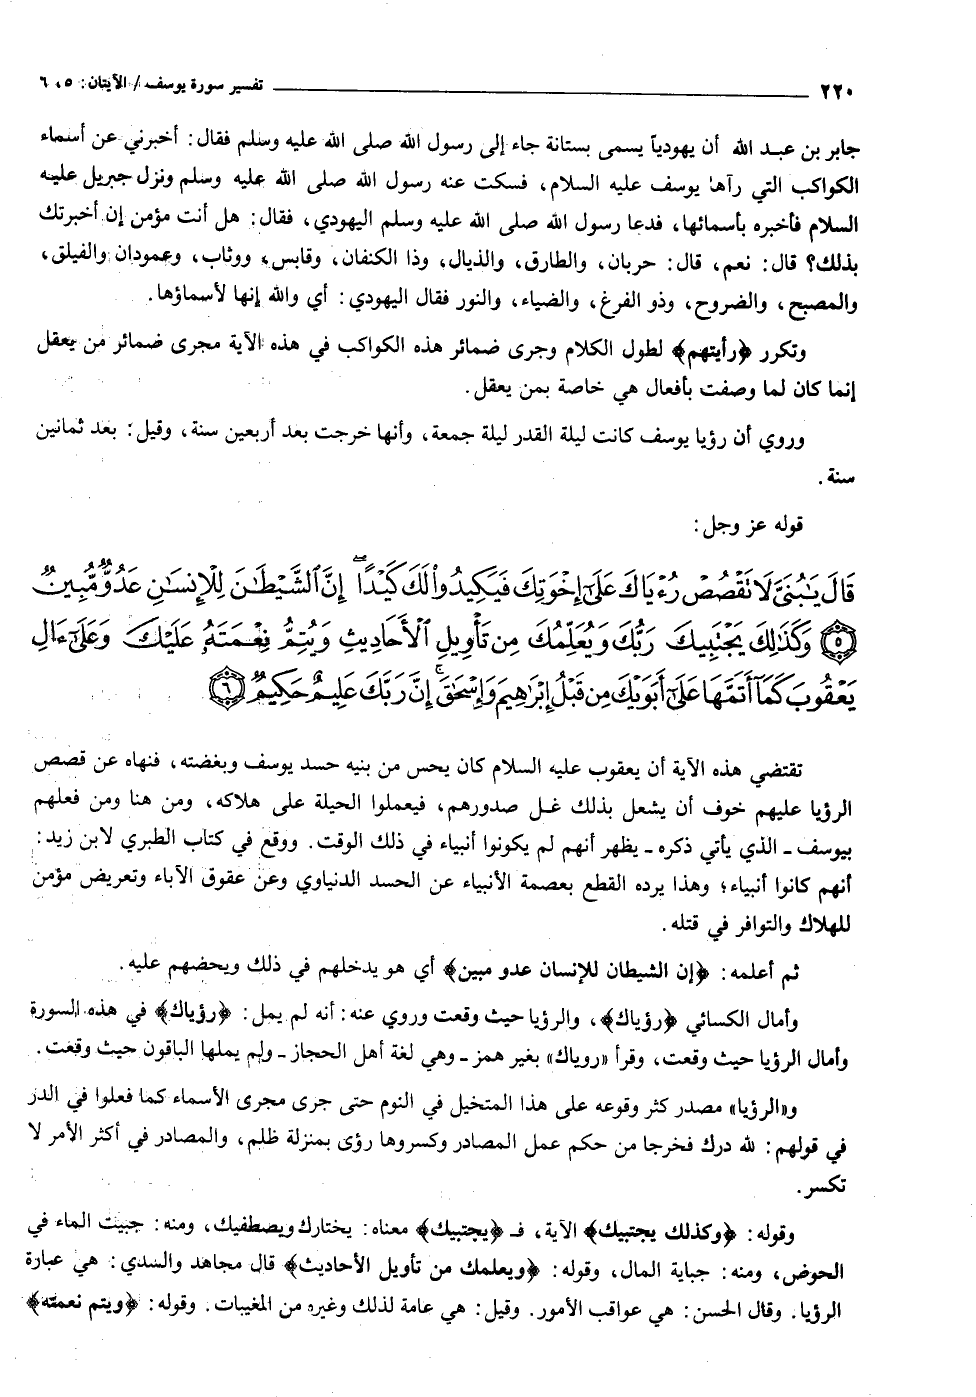 ٢٢٠ ــــــــ تفسير سورة يوسف / الآيتان: ٥، ٦
جابر بن عبد الله أن يهودياً يسمى بستانة جاء إلى رسول الله صلى الله عليه وسلم فقال: أخبرني عن أسماء
الكواكب التي رآها يوسف عليه السلام، فسكت عنه رسول الله صلى الله عليه وسلم ونزل جبريل عليه
السلام فأخبره بأسمائها، فدعا رسول الله صلى الله عليه وسلم اليهودي، فقال: هل أنت مؤمن إن أخبرتك
بذلك؟ قال: نعم، قال: حربان، والطارق، والذيال، وذا الكنفان، وقابس، ووثاب، وعمودان والفيلق،
والمصبح، والضروح، وذو الفرغ، والضياء، والنور فقال اليهودي: أي والله إنها لأسماؤها.
وتكرر ﴿رأيتهم﴾ لطول الكلام وجرى ضمائر هذه الكواكب في هذه الآية مجرى ضمائر من يعقل
إنما كان لما وصفت بأفعال هي خاصة بمن يعقل.
وروي أن رؤيا يوسف كانت ليلة القدر ليلة جمعة، وأنها خرجت بعد أربعين سنة، وقيل: بعد ثمانين
سنة.
قوله عز وجل:
قَالَ يَٰبُنَيَّ لَا تَقْصُصْ رُءْيَاكَ عَلَىٰٓ إِخْوَتِكَ فَيَكِيدُوا۟ لَكَ كَيْدًا ۖ إِنَّ ٱلشَّيْطَٰنَ لِلْإِنسَٰنِ عَدُوٌّ مُّبِينٌ
﴿٥﴾ وَكَذَٰلِكَ يَجْتَبِيكَ رَبُّكَ وَيُعَلِّمُكَ مِن تَأْوِيلِ ٱلْأَحَادِيثِ وَيُتِمُّ نِعْمَتَهُۥ عَلَيْكَ وَعَلَىٰٓ ءَالِ
يَعْقُوبَ كَمَآ أَتَمَّهَا عَلَىٰٓ أَبَوَيْكَ مِن قَبْلُ إِبْرَٰهِيمَ وَإِسْحَٰقَ ۚ إِنَّ رَبَّكَ عَلِيمٌ حَكِيمٌ ﴿٦﴾
تقتضي هذه الآية أن يعقوب عليه السلام كان يحس من بنيه حسد يوسف وبغضته، فنهاه عن قصص
الرؤيا عليهم خوف أن يشعل بذلك غل صدورهم، فيعملوا الحيلة على هلاكه، ومن هنا ومن فعلهم
بيوسف ـ الذي يأتي ذكره ـ يظهر أنهم لم يكونوا أنبياء في ذلك الوقت. ووقع في كتاب الطبري لابن زيد:
أنهم كانوا أنبياء؛ وهذا يرده القطع بعصمة الأنبياء عن الحسد الدنياوي وعن عقوق الآباء وتعريض مؤمن
للهلاك والتوافر في قتله.
ثم أعلمه: ﴿إن الشيطان للإنسان عدو مبين﴾ أي هو يدخلهم في ذلك ويحضهم عليه.
وأمال الكسائي ﴿رؤياك﴾، والرؤيا حيث وقعت وروي عنه: أنه لم يمل: ﴿رؤياك﴾ في هذه السورة
وأمال الرؤيا حيث وقعت، وقرأ «روياك» بغير همز ـ وهي لغة أهل الحجاز ـ ولم يملها الباقون حيث وقعت.
و«الرؤيا» مصدر كثر وقوعه على هذا المتخيل في النوم حتى جرى مجرى الأسماء كما فعلوا في الدر
في قولهم: لله درك فخرجا من حكم عمل المصادر وكسروها رؤى بمنزلة ظلم، والمصادر في أكثر الأمر لا
تكسر.
وقوله: ﴿وكذلك يجتبيك﴾ الآية، فـ ﴿يجتبيك﴾ معناه: يختارك ويصطفيك، ومنه: جبيت الماء في
الحوض، ومنه: جباية المال، وقوله: ﴿ويعلمك من تأويل الأحاديث﴾ قال مجاهد والسدي: هي عبارة
الرؤيا. وقال الحسن: هي عواقب الأمور. وقيل: هي عامة لذلك وغيره من المغيبات. وقوله: ﴿ويتم نعمته﴾